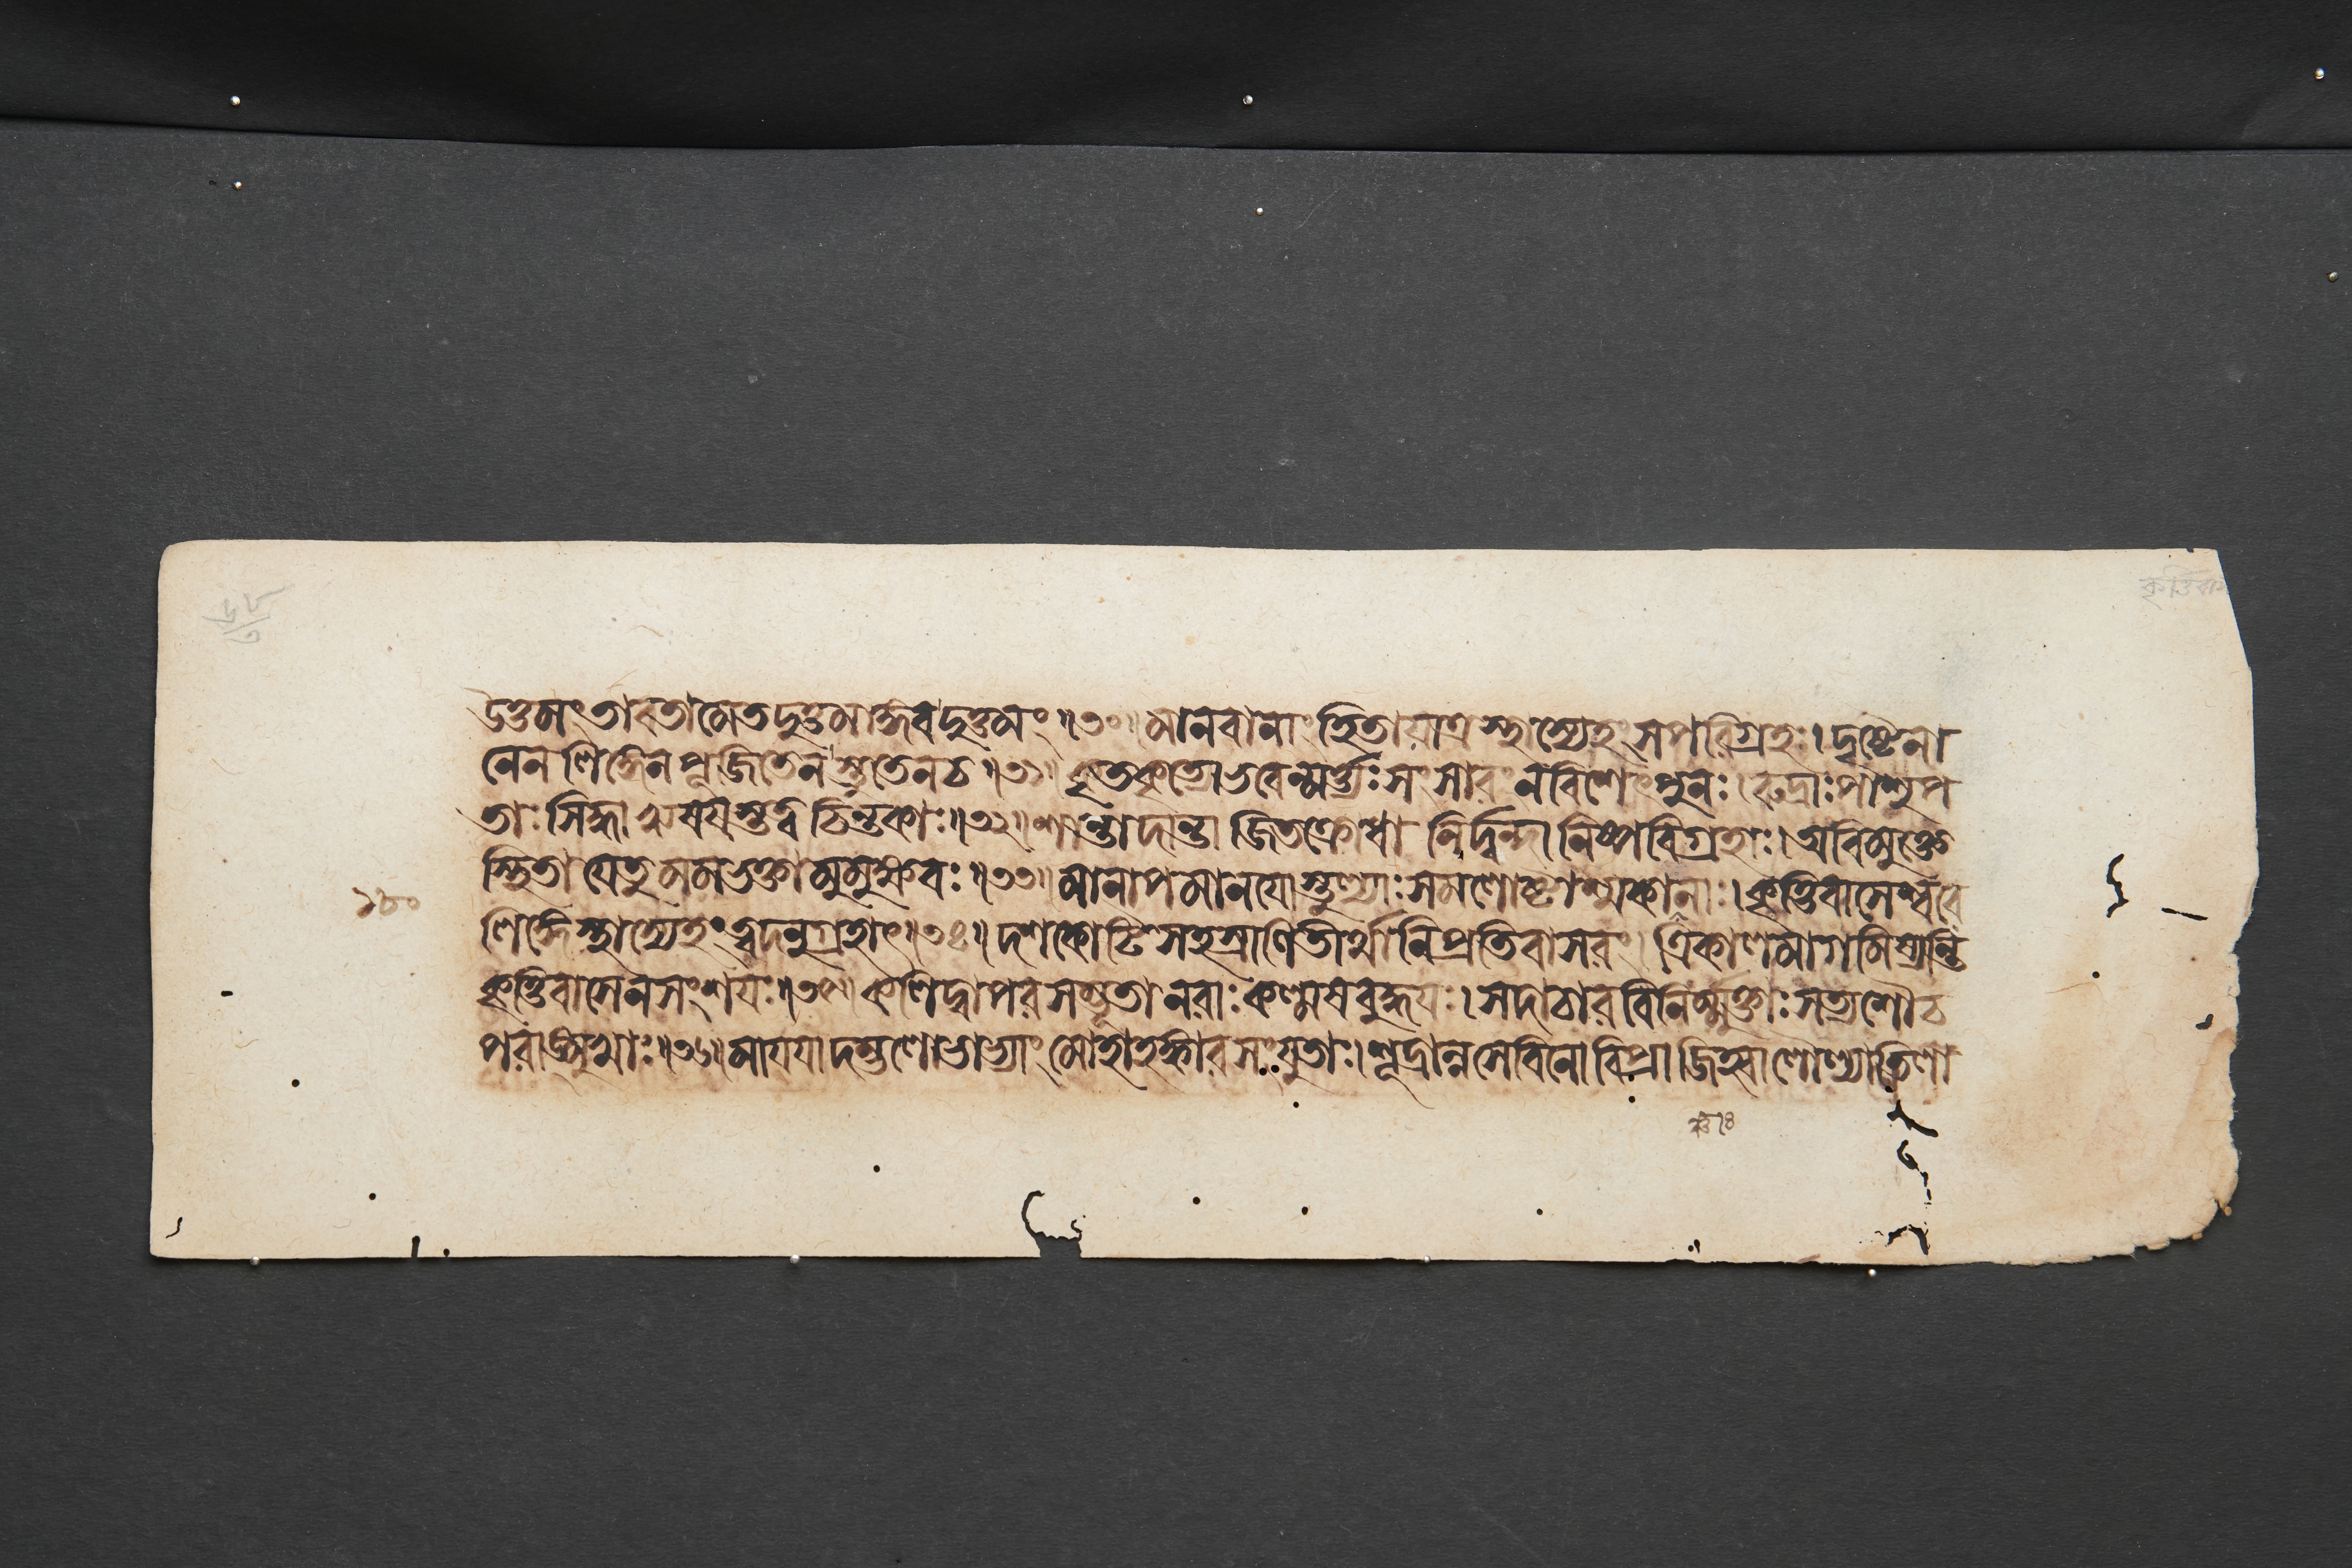 ৬৮
৩
কৃত্তিবাস
তাবতামেতদুত্তমাঙ্গবদুত্তমং॥৩০॥মানবানাং হিতায়াত্র স্থাস্যেহং সপরিগ্রহঃ।দৃষ্টেনা
নেন লিঙ্গেন পূজিতেন স্তুতেন চ॥৩১॥কৃতকৃত্যো ভবেন্মর্ত্ত্যঃ সংসারং ন বিশেৎ পুনঃ।রুদ্রাঃ পাশুপ
তাঃ সিদ্ধা ঋষয়স্তত্ত্বচিন্তকাঃ॥৩২॥শান্তা দান্তা জিতক্রোধা নির্দ্বন্দ্বা নিষ্পরিগ্রহাঃ।অবিমুক্তে
স্থিতা যে তু মম ভক্তা মুমুক্ষবঃ॥৩৩॥মানাপমানয়োস্তুল্যাঃ সমলোষ্টাশ্মকাঞ্চনাঃ।কৃত্তিবাসেশ্বরে
১৮০
লিঙ্গে স্থাস্যেহং ত্বদনুগ্রহাৎ॥৩৪॥দশকোটিসহস্রাণি তীর্থানি প্রতিবাসরং।ত্রিকালমাগমিষ্যন্তি
কৃত্তিবাসে ন সংশয়ঃ॥৩৫॥কলিদ্বাপরসম্ভূতা নরাঃ কল্মষবুদ্ধয়ঃ।সদাচারবিনির্ম্মুক্তাঃ সত্যশৌচ
পরাঙ্মুখাঃ॥৩৬॥মায়য়া দম্ভলোভাভ্যাং মোহাহঙ্কারসংযুতাঃ।শূদ্রান্নসেবিনো বিপ্রা